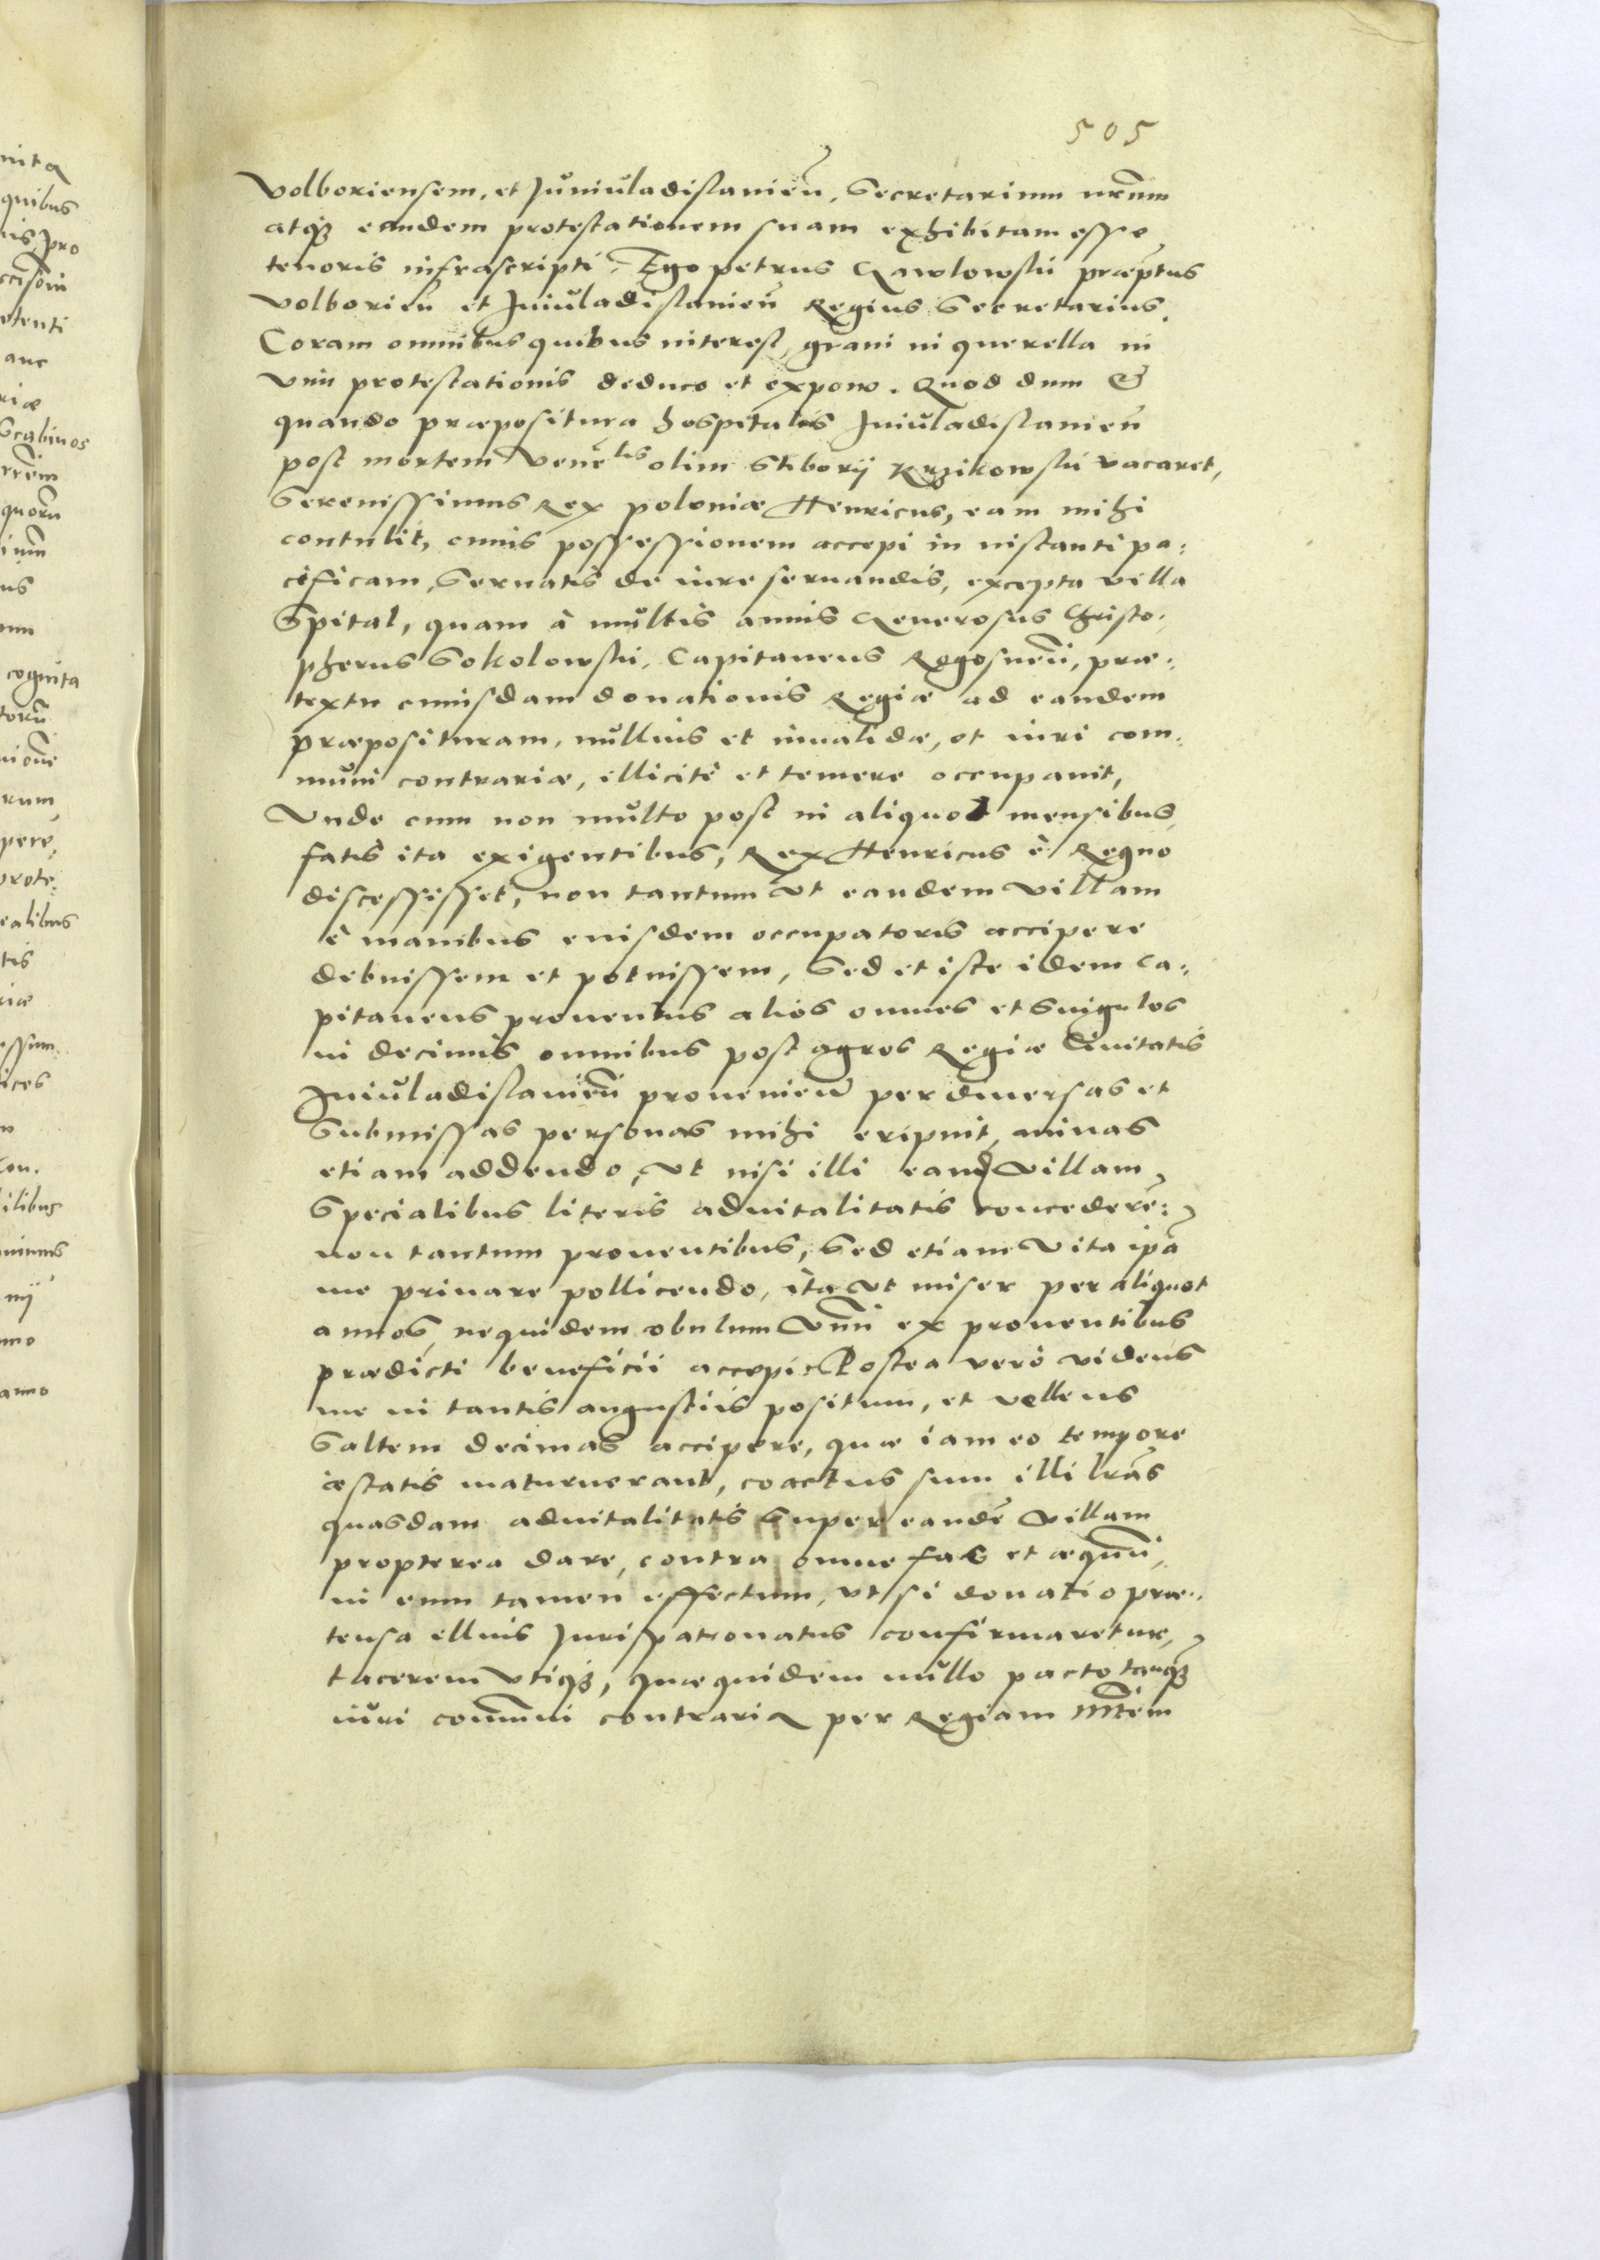 505
Volboriensem, et Juniuladislauien̄, Secretarium nr̄um
atq̨ȝ eandem protestationem suam exhibitam esse
tenoris infrascripti. Ego Petrus Gawlowski præp̄tus
Volborien̄ et Iuniuladislauien̄ Regius Secretarius.
Coram omnibus quibus interest, graui in querella in
vim protestationis deduco et expono. Quod dum &
quando præpositura hospitalis Iuniuladislauien̄
post mortem Vener̄lis olim Stiborij Krzikowski vacaret,
Serenissimus Rex Poloniæ Henricus, eam mihi
contulit, cuius possessionem accepi in instanti pa:
cificam, Seruatis de iure seruandis, excepta villa
Spital, quam à multis annis Generosus Christo:
pherus Sokolowski, Capitaneus Rogosnen̄, præ:
textu cuiusdam donationis Regiæ ad eandem
præposituram, nullius et inualidæ, et iuri com:
muni contrariæ, illicitè et temere occupauit,
Vnde cum non multo post in aliquot mensibus,
fatis ita exigentibus, Rex Henricus è Regno
discessisset, non tantum vt eandem villam
è manibus eiusdem occupatoris accipere
debuissem et potuissem, Sed et iste idem Ca:
pitaneus prouentus alios omnes et Singulos
in decimis omnibus post agros Regiæ Ciuitatis
Iuniuladislauien̄ prouenien̄ per diuersas et
Submissas personas mihi eripuit, minas
etiam addendo, vt nisi illi eand̄ villam
Specialibus literis aduitalitatis concederē:
non tantum prouentibus, Sed etiam vita ip̄a
me priuare pollicendo, ita vt miser per aliquot
annos, nequidem obulum vnū ex prouentibus
prædicti beneficii accepi: Postea verò videns
me in tantis angustiis positum, et vellens
Saltem decimas accipere, quæ iam eo tempore
æstatis maturuerant, coactus sum illi lr̄as
quasdam aduitalitatis Super eandē villam
propterea dare, contra omne fas et æquum,
in eum tamen effectum, vt si donatio præ:
tensa illius Jurispatronatus confirmaretur,
tacerem vtiq̨ȝ, quæ quidem nullo pacto tanq̨ȝ
iuri com̄uni contraria per Regiam Mtēm